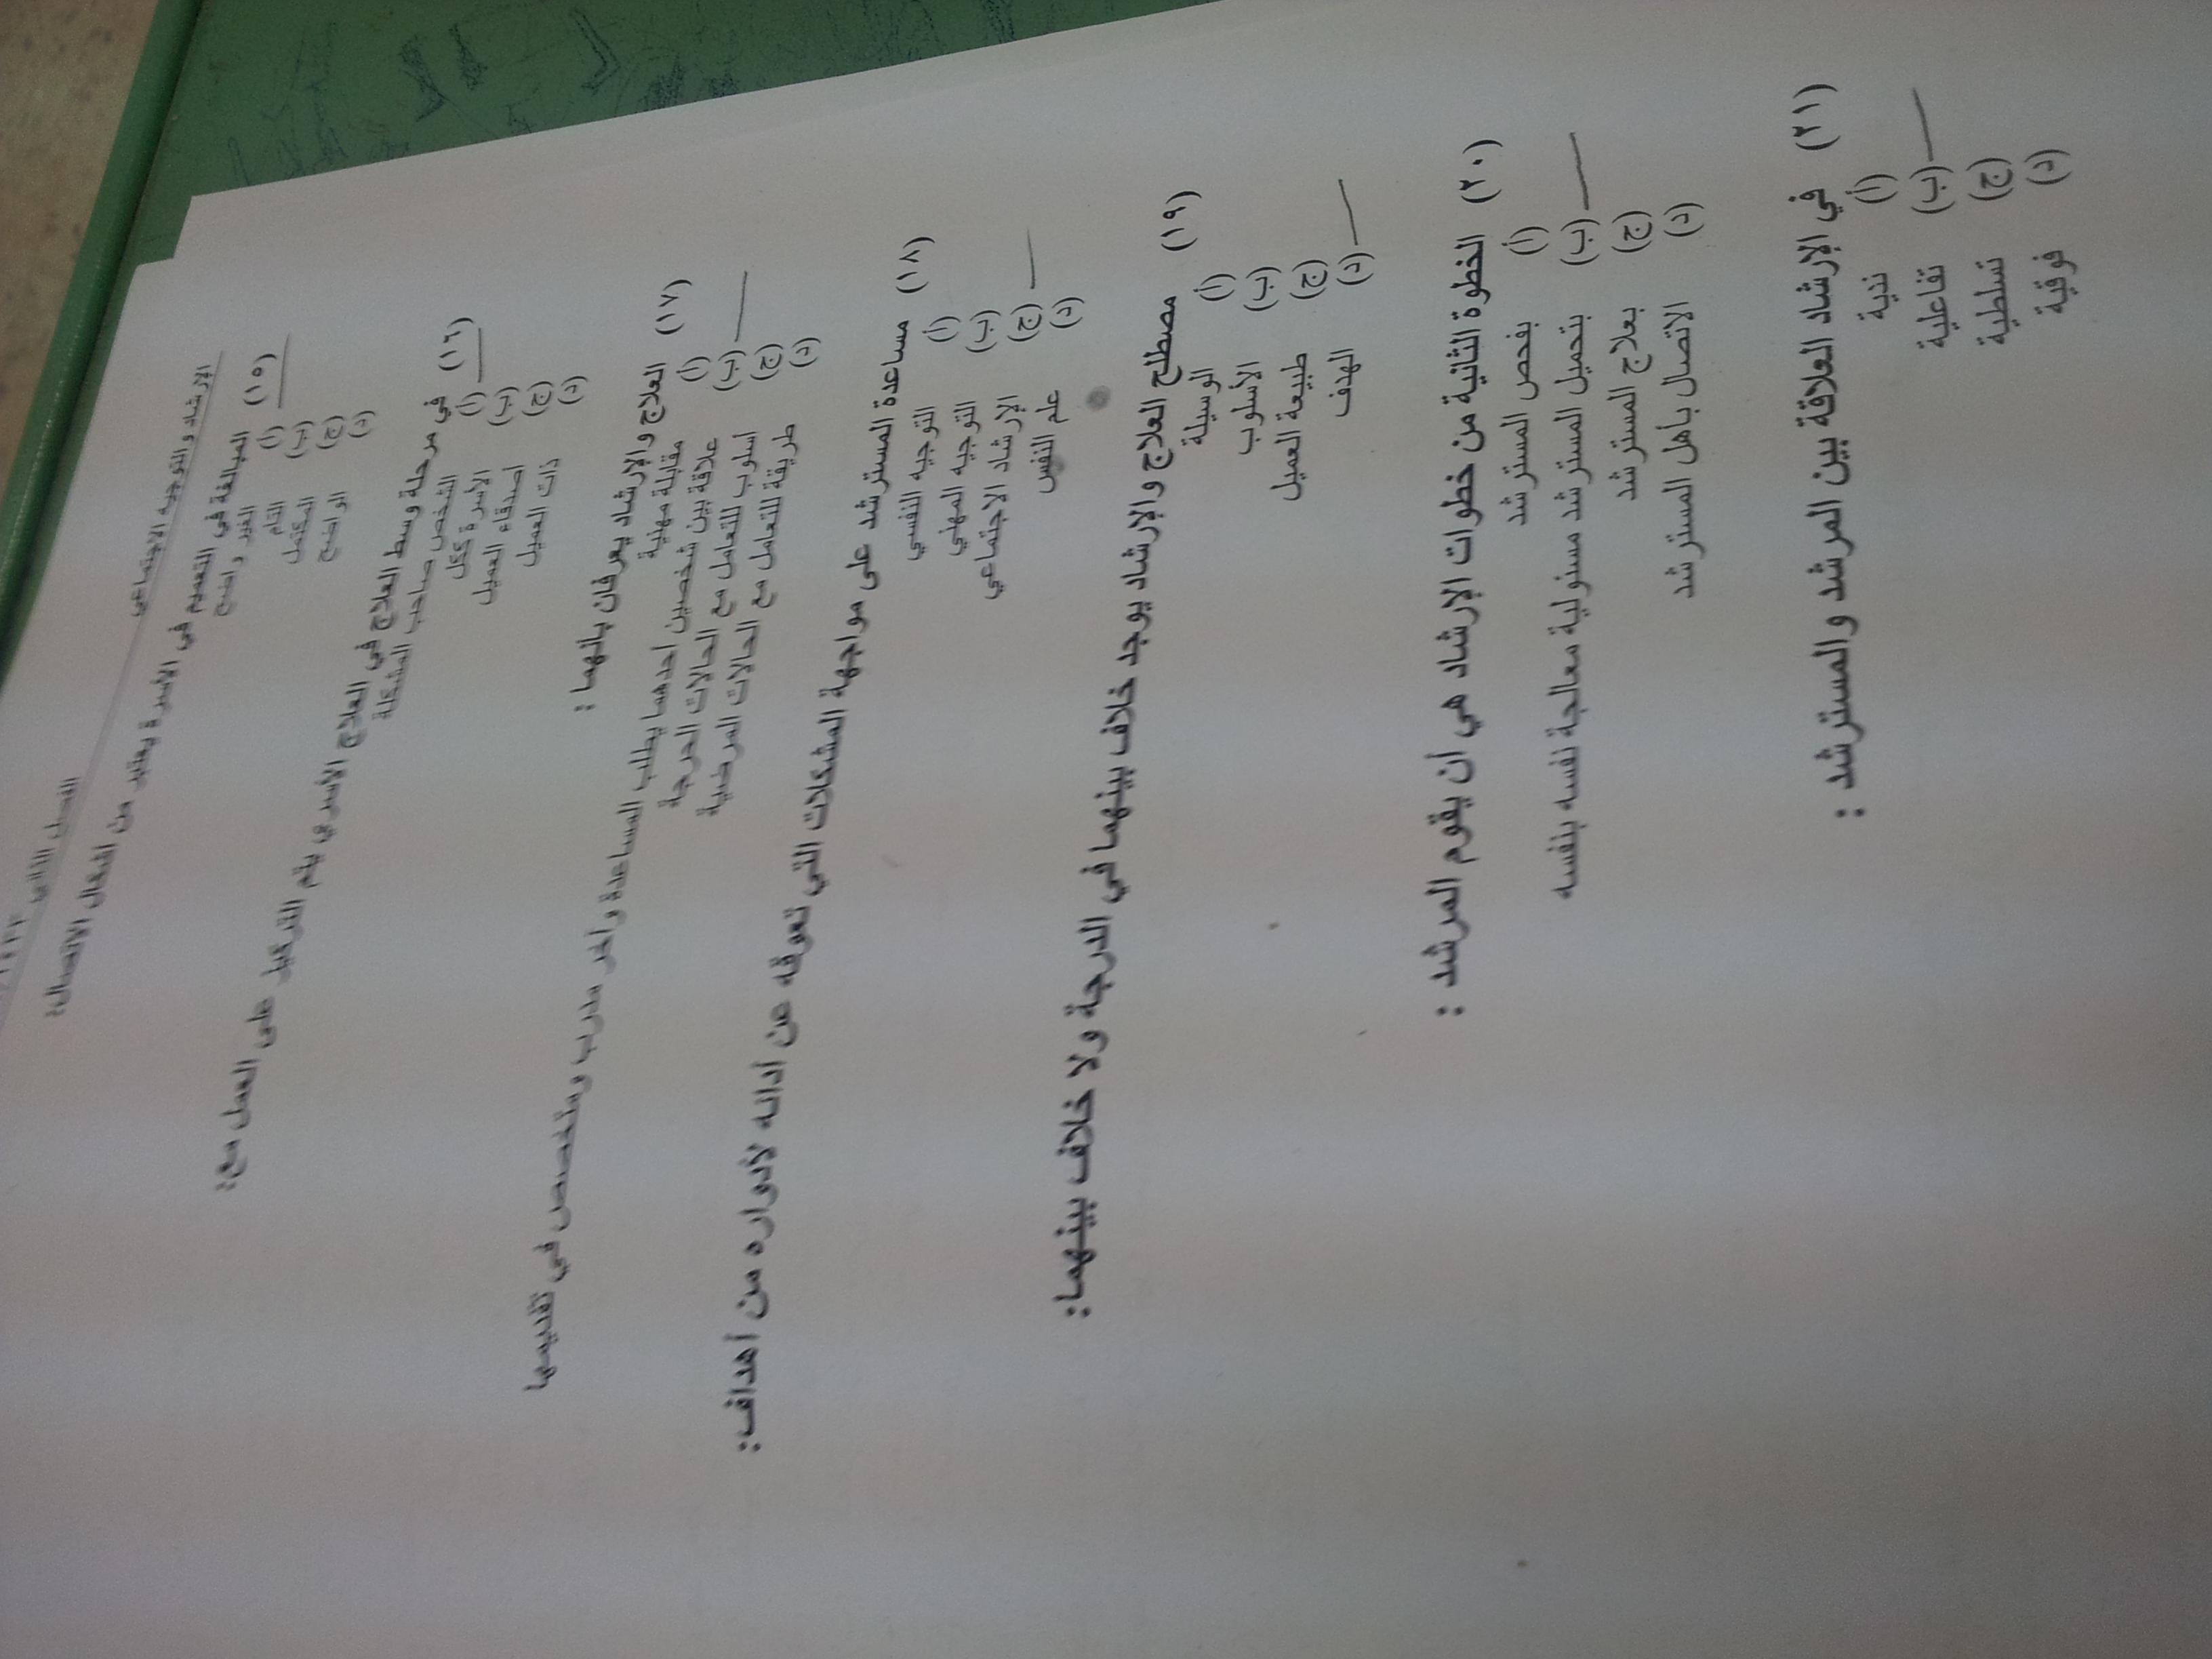 الإرشاد والتوجيه الاجتماعي
الفصل الثاني
(١٥) المبالغة في التعميم في الأسرة يعتبر من اشكال الاتصال:
(أ) الغير واضح
(ب) التام
(ج) المكتمل
(د) الواضح
(١٦) في مرحلة وسط العلاج في العلاج الأسري يتم التركيز على العمل مع:
(أ) الشخص صاحب المشكلة
(ب) الأسرة ككل
(ج) أصدقاء العميل
(د) ذات العميل
(١٧) العلاج والإرشاد يعرفان بأنهما :
(أ) مقابلة مهنية
(ب) علاقة بين شخصين احدهما يطلب المساعدة وآخر مدرب ومتخصص في تقديمها
(ج) أسلوب للتعامل مع الحالات الحرجة
(د) طريقة للتعامل مع الحالات المرضية
(١٨) مساعدة المسترشد على مواجهة المشكلات التي تعوقه عن أدائه لأدواره من أهداف:
(أ) التوجيه النفسي
(ب) التوجيه المهني
(ج) الإرشاد الاجتماعي
(د) علم النفس
(١٩) مصطلح العلاج والإرشاد يوجد خلاف بينهما في الدرجة ولا خلاف بينهما:
(أ) الوسيلة
(ب) الأسلوب
(ج) طبيعة العميل
(د) الهدف
(٢٠) الخطوة الثانية من خطوات الإرشاد هي أن يقوم المرشد :
(أ) بفحص المسترشد
(ب) بتحميل المسترشد مسئولية معالجة نفسه بنفسه
(ج) بعلاج المسترشد
(د) الاتصال بأهل المسترشد
(٢١) في الإرشاد العلاقة بين المرشد والمسترشد :
(أ) ندية
(ب) تفاعلية
(ج) تسلطية
(د) فوقية